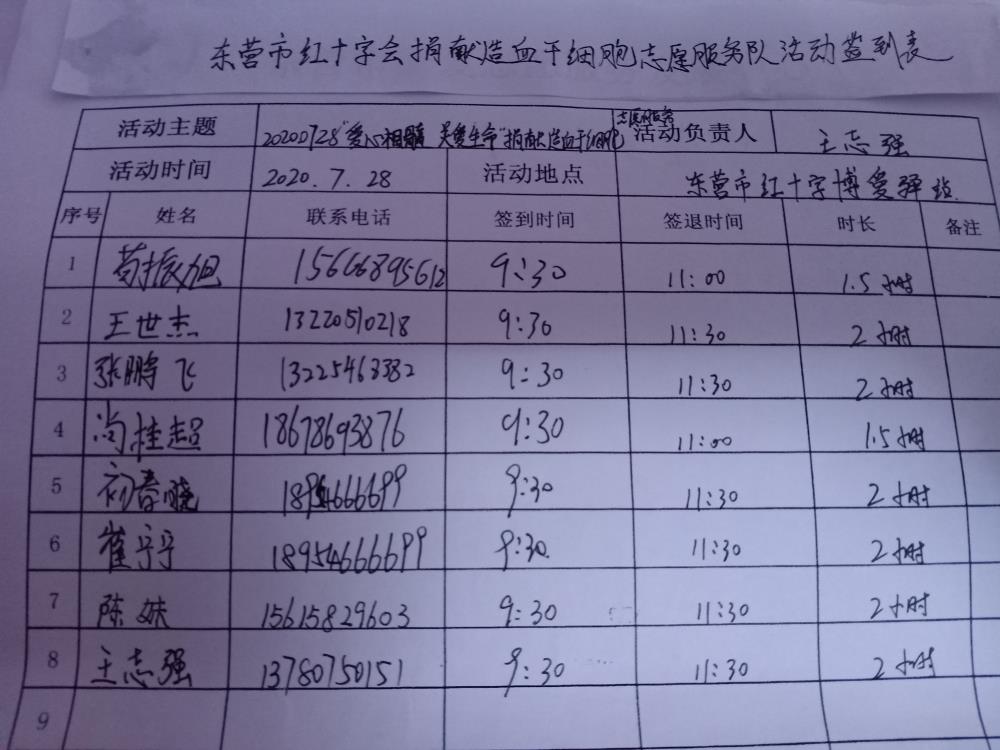 东营市红十字会捐献造血干细胞志愿服务队活动签到表
活动主题 20200728"爱心相髓 关爱生命"捐献造血干细胞志愿服务 活动负责人 王志强
活动时间 2020.7.28 活动地点 东营市红十字博爱驿站
序号 姓名 联系电话 签到时间 签退时间 时长 备注
1 荀振旭 15666895612 9:30 11:00 1.5小时
2 王世杰 13220510218 9:30 11:30 2小时
3 张鹏飞 13225463382 9:30 11:30 2小时
4 尚桂超 18678693876 9:30 11:00 1.5小时
5 初春晓 18954666699 9:30 11:30 2小时
6 崔宁宁 18954666699 9:30 11:30 2小时
7 陈姝 15615829603 9:30 11:30 2小时
8 王志强 13780750151 9:30 11:30 2小时
9